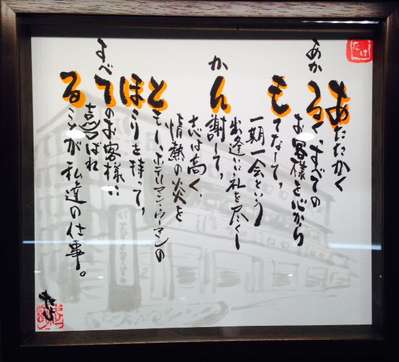 あたたかく
あかるく、すべての
お客様を心から
もてなして、
一期一会という
出逢いに礼を尽くし
かん謝して、
志は高く、
情熱の炎を
ともし、ホテルマン・ウーマンの
ほこりを持って、
すべてのお客様に
喜ばれ
ることが私達の仕事。